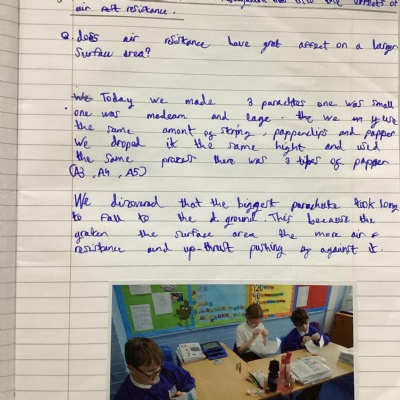 effects of
air resistance.
Q. does air risitance have grat affect on a larger
surface area?
We Today we made 3 parachtes one was small
one was medeam and lage - the we use
the same amont of string, papperclips and papper
We droped it the same hight and used
the same process there was 3 tipes of papper
(A3, A4, A5)
We discovred that the biggest parachute took long
to fall to the ground. This because the
greaten the surface area the more air
resistance and up-thrust pushing against it.